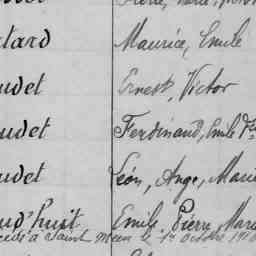 tard Maurice, Emile
udet Ernest, Victor
udet Ferdinand, Emile
udet Léon, Ange, Marie
ud'huit Emile, Pierre, Marie
à Saint Méen le 1er Octobre